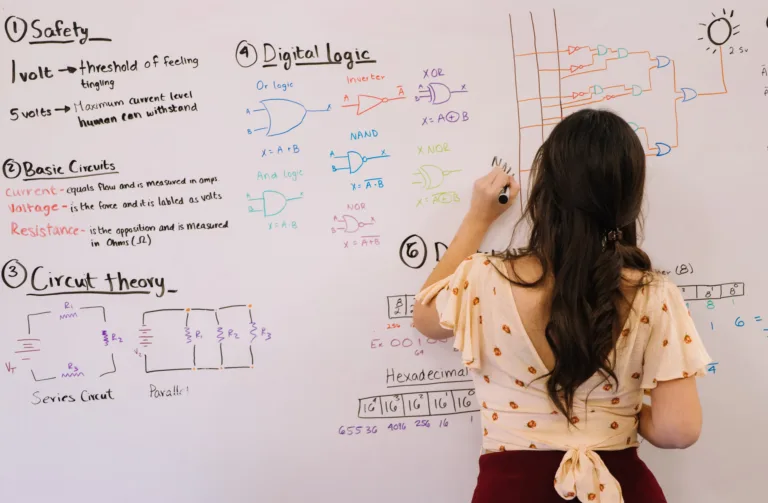 ① Safety
1 volt → threshold of feeling
tingling
5 volts → Maximum current level
human can withstand
② Basic Circuits
Current - equals flow and is measured in amps.
Voltage - is the force and it is labled as volts
Resistance - is the opposition and is measured
in Ohms (Ω)
③ Circuit theory
R₁
R₂
R₃
V
Series Circuit
R₁ R₂ R₃
④ Digital logic
Or logic
A
B
X
X = A + B
And logic
X = A·B
Inverter
A
A̅
NAND
A
B
X
X = A̅·̅B̅
NOR
A
B
X
X = A̅+̅B̅
XOR
A
B
X
X = A ⊕ B
X NOR
X = A̅⊕̅B̅
2.5v
(8)
8¹ 8⁰
8 1
1 6 =
Ex 001
64
256
Hexadecimal
16⁴ 16³ 16² 16¹ 16⁰
65536 4096 256 16 1